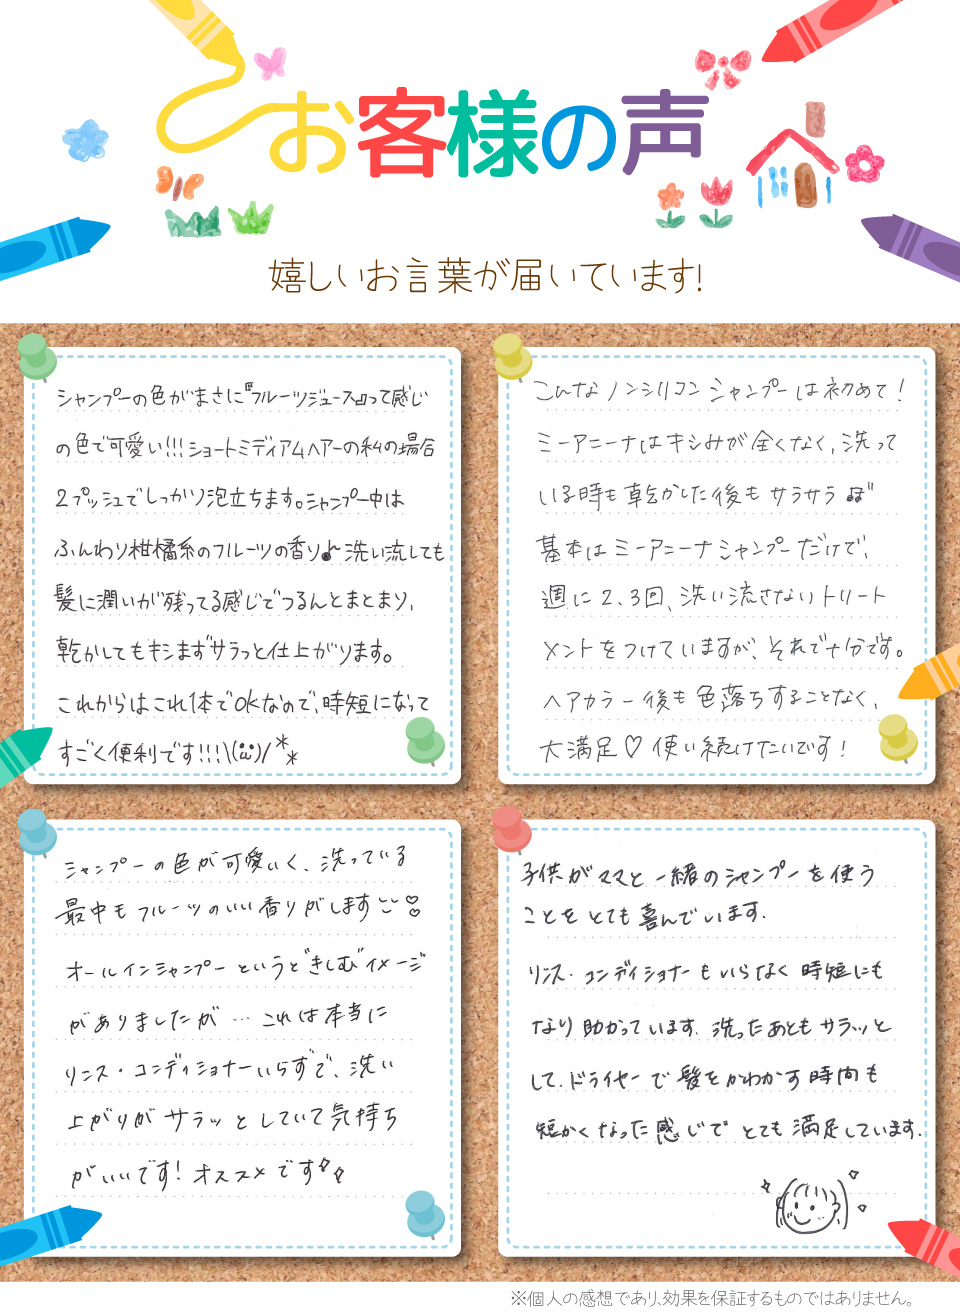 お客様の声
嬉しいお言葉が届いています!
シャンプーの色がまさに『フルーツジュース』って感じ
の色で可愛い!!!ショートミディアムヘアーの私の場合
2プッシュでしっかり泡立ちます。シャンプー中は
ふんわり柑橘系のフルーツの香り♪洗い流しても
髪に潤いが残ってる感じでつるんとまとまり、
乾かしてもキシまずサラっと仕上がります。
これからはこれ1体でOKなので、時短になって
すごく便利です!!!\(¨)/**
こんなノンシリコンシャンプーは初めて!
ミーアニーナはキシみが全くなく、洗って
いる時も乾かした後もサラサラ♫"
基本はミーアニーナシャンプーだけで、
週に2、3回、洗い流さないトリート
メントをつけていますが、それで十分です。
ヘアカラー後も色落ちすることなく、
大満足♡使い続けたいです!
シャンプーの色が可愛いく、洗っている
最中もフルーツのいい香りがします♡♡
オールインシャンプーというときしむイメージ
がありましたが…これは本当に
リンス・コンディショナーいらずで、洗い
上がりがサラッとしていて気持ち
がいいです!オススメです✧✧
子供がママと一緒のシャンプーを使う
ことをとても喜んでいます.
リンス・コンディショナーもいらなく時短にも
なり助かっています.洗ったあともサラッと
して、ドライヤーで髪をかわかす時間も
短かくなった感じでとても満足しています.
※個人の感想であり、効果を保証するものではありません。